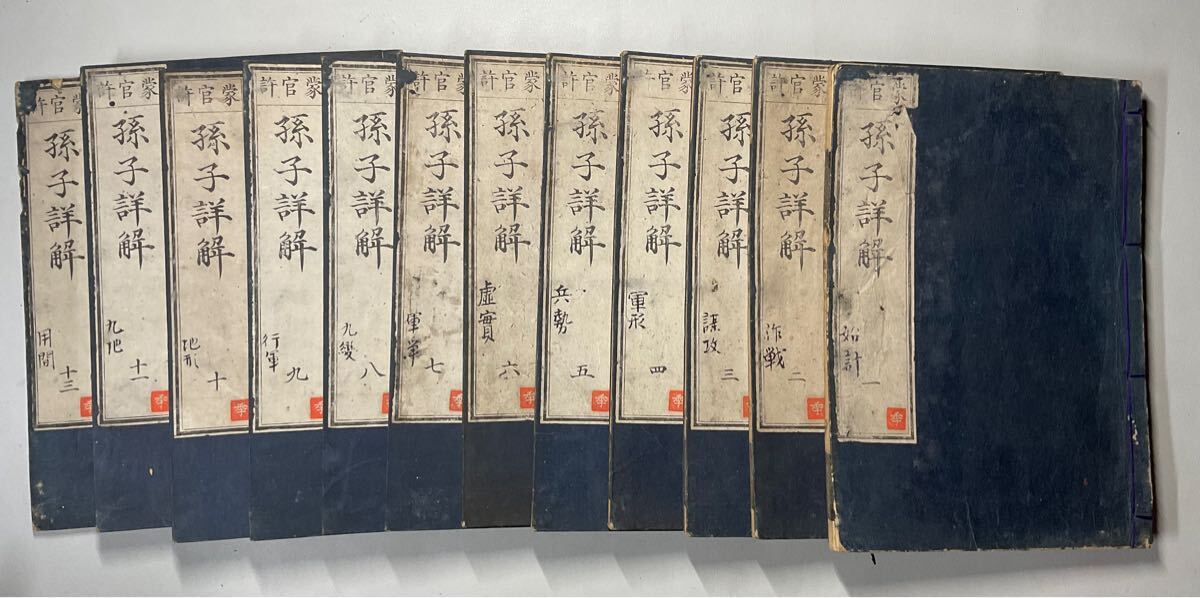 官
孫子詳解
始計
一
蒙官許
孫子詳解
作戦
二
蒙官許
孫子詳解
謀攻
三
蒙官許
孫子詳解
軍形
四
蒙官許
孫子詳解
兵勢
五
蒙官許
孫子詳解
虚實
六
蒙官許
孫子詳解
軍争
七
蒙官許
孫子詳解
九變
八
蒙官許
孫子詳解
行軍
九
蒙官許
孫子詳解
地形
十
蒙官許
孫子詳解
九地
十一
蒙官許
孫子詳解
用間
十三